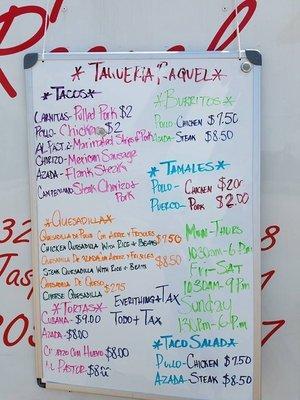 TAQUERIA RAQUEL
TACOS
CARNITAS- Pulled Pork $2
Pollo- Chicken $2
AL PASTOR- Marinated Strips of Pork
CHORIZO- Mexican Sausage
AZADA- Flank Steak
CAMPECHANO Steak Chorizo + Pork
QUESADILLA
QUESADILLA DE POLLO CON ARROZ Y FRIJOLES
CHICKEN QUESADILLA WITH RICE + BEANS $7.50
QUESADILLA DE AZADA CON ARROZ Y FRIJOLES
STEAK QUESADILLA WITH RICE + BEANS $8.50
QUESADILLA DE QUESO
CHEESE QUESADILLA $2.75
TORTAS
CUBANA- $9.00
AZADA- $8.00
CHORIZO CON HUEVO $8.00
AL PASTOR- $8.00
EVERYTHING + TAX
TODO + TAX
BURRITOS
POLLO- CHICKEN $7.50
AZADA- STEAK $8.50
TAMALES
POLLO- CHICKEN $2.00
PUERCO- PORK $2.00
MON-THURS
10:30am-6pm
FRI-SAT
10:30AM-9pm
Sunday
1:30PM-6pm
TACO SALAD
POLLO-CHICKEN $7.50
AZADA-STEAK $8.50